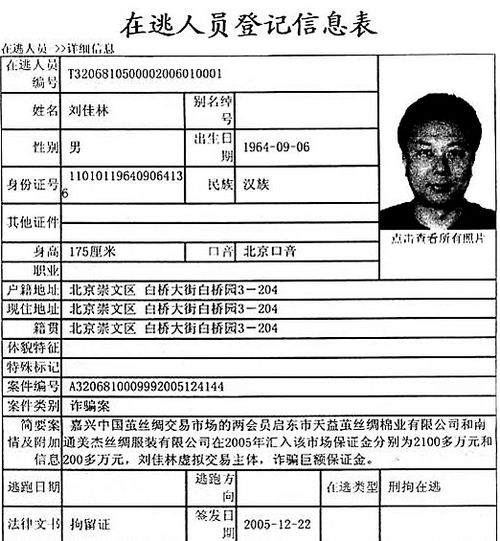 在逃人员登记信息表
在逃人员 >>详细信息
在逃人员编号 T3206810500002006010001
姓名 刘佳林 别名绰号
性别 男 出生日期 1964-09-06
身份证号 110101196409064136 民族 汉族
其他证件
点击查看所有照片
身高 175厘米 口音 北京口音
职业
户籍地址 北京崇文区 白桥大街白桥园3－204
现住地址 北京崇文区 白桥大街白桥园3－204
籍贯 北京崇文区 白桥大街白桥园3－204
体貌特征
特殊标记
案件编号 A3206810009992005124144
案件类别 诈骗案
简要案情及附加信息 嘉兴中国茧丝绸交易市场的两会员启东市天益茧丝绸棉业有限公司和南
通美杰丝绸服装有限公司在2005年汇入该市场保证金分别为2100多万元和
200多万元，刘佳林虚拟交易主体，诈骗巨额保证金。
逃跑日期 逃跑方向 在逃类型 刑拘在逃
法律文书 拘留证 签发日期 2005-12-22